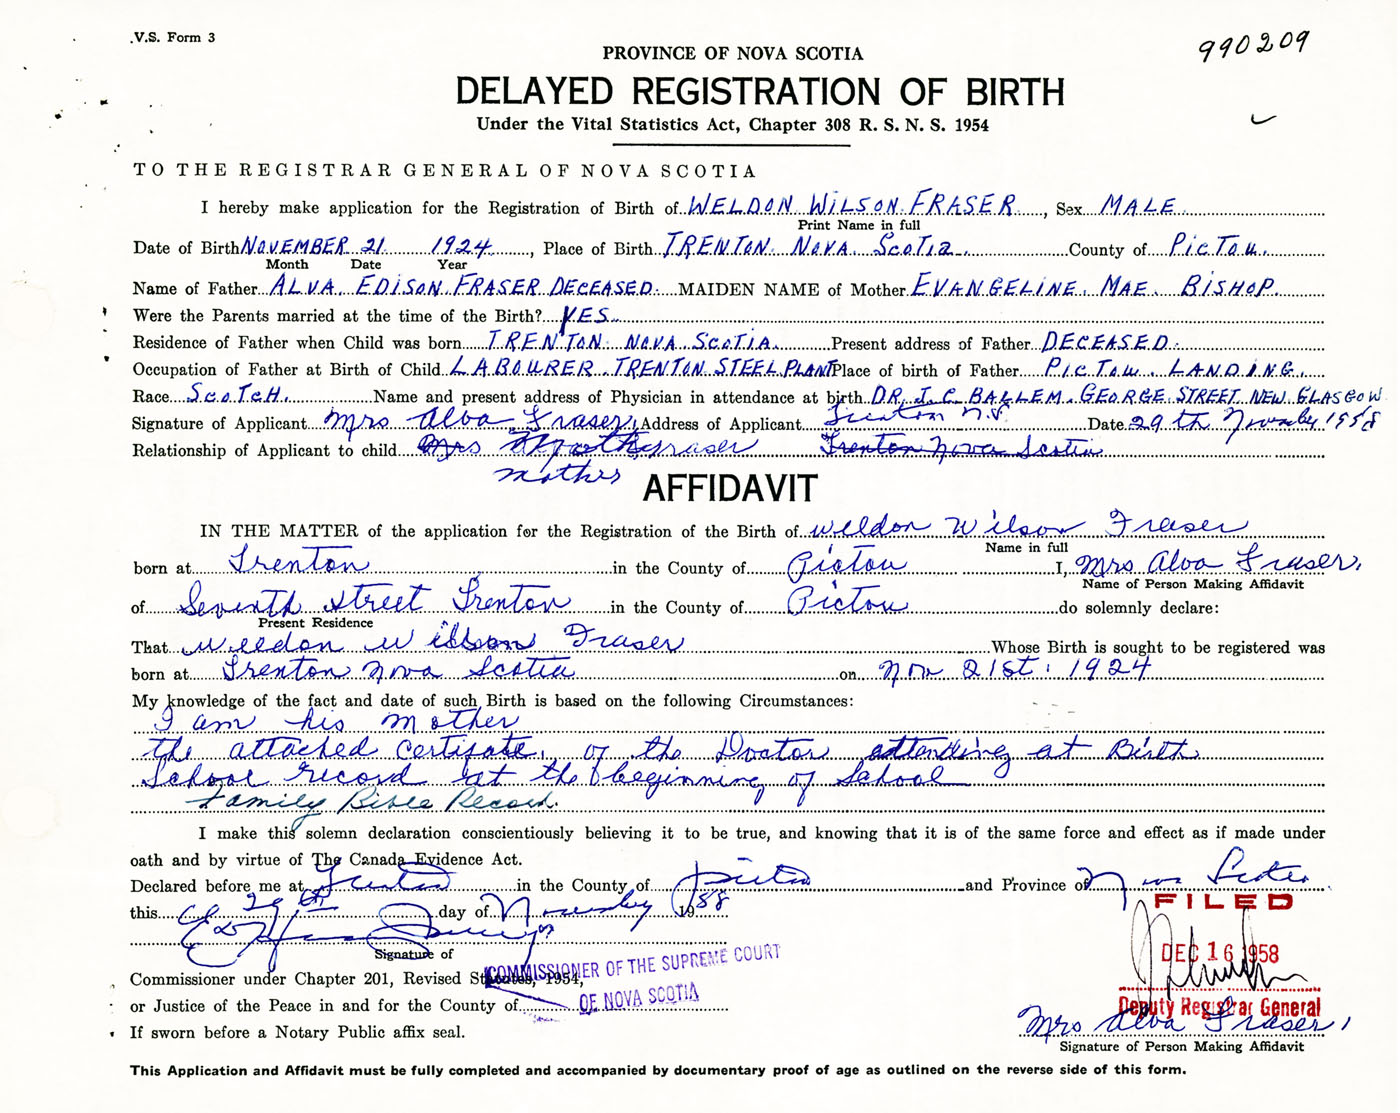 V.S. Form 3
990209
PROVINCE OF NOVA SCOTIA
DELAYED REGISTRATION OF BIRTH
Under the Vital Statistics Act, Chapter 308 R. S. N. S. 1954
TO THE REGISTRAR GENERAL OF NOVA SCOTIA
I hereby make application for the Registration of Birth of WELDON WILSON FRASER, Sex MALE
Print Name in full
Date of Birth NOVEMBER 21 1924, Place of Birth TRENTON NOVA SCOTIA County of PICTOU.
Month Date Year
Name of Father ALVA EDISON FRASER DECEASED. MAIDEN NAME of Mother EVANGELINE MAE BISHOP.
Were the Parents married at the time of the Birth? YES.
Residence of Father when Child was born TRENTON NOVA SCOTIA. Present address of Father DECEASED.
Occupation of Father at Birth of Child LABOURER TRENTON STEEL PLANT Place of birth of Father PICTOU LANDING.
Race SCOTCH. Name and present address of Physician in attendance at birth DR. J. C. BALLEM. GEORGE STREET NEW GLASGOW
Signature of Applicant Mrs Alva Fraser, Address of Applicant Trenton N.S. Date 29th November 1958
Relationship of Applicant to child Mrs Fraser Trenton Nova Scotia
mother
AFFIDAVIT
IN THE MATTER of the application for the Registration of the Birth of Weldon Wilson Fraser
Name in full
born at Trenton in the County of Pictou I, Mrs Alva Fraser,
Name of Person Making Affidavit
of Seventh Street Trenton in the County of Pictou do solemnly declare:
Present Residence
That Weldon Wilson Fraser Whose Birth is sought to be registered was
born at Trenton Nova Scotia on Nov 21st. 1924
My knowledge of the fact and date of such Birth is based on the following Circumstances:
I am his mother
the attached certifate. of the Doctor attending at Birth
School record at the beginning of School
Family Bible Record.
I make this solemn declaration conscientiously believing it to be true, and knowing that it is of the same force and effect as if made under
oath and by virtue of The Canada Evidence Act.
Declared before me at Trenton in the County of Pictou and Province of Nova Scotia
this 29th day of November 1958
FILED
DEC 16 1958
Deputy Registrar General
Signature of
Commissioner under Chapter 201, Revised Statutes, 1954,
COMMISSIONER OF THE SUPREME COURT
OF NOVA SCOTIA
or Justice of the Peace in and for the County of
If sworn before a Notary Public affix seal.
Mrs Alva Fraser,
Signature of Person Making Affidavit
This Application and Affidavit must be fully completed and accompanied by documentary proof of age as outlined on the reverse side of this form.